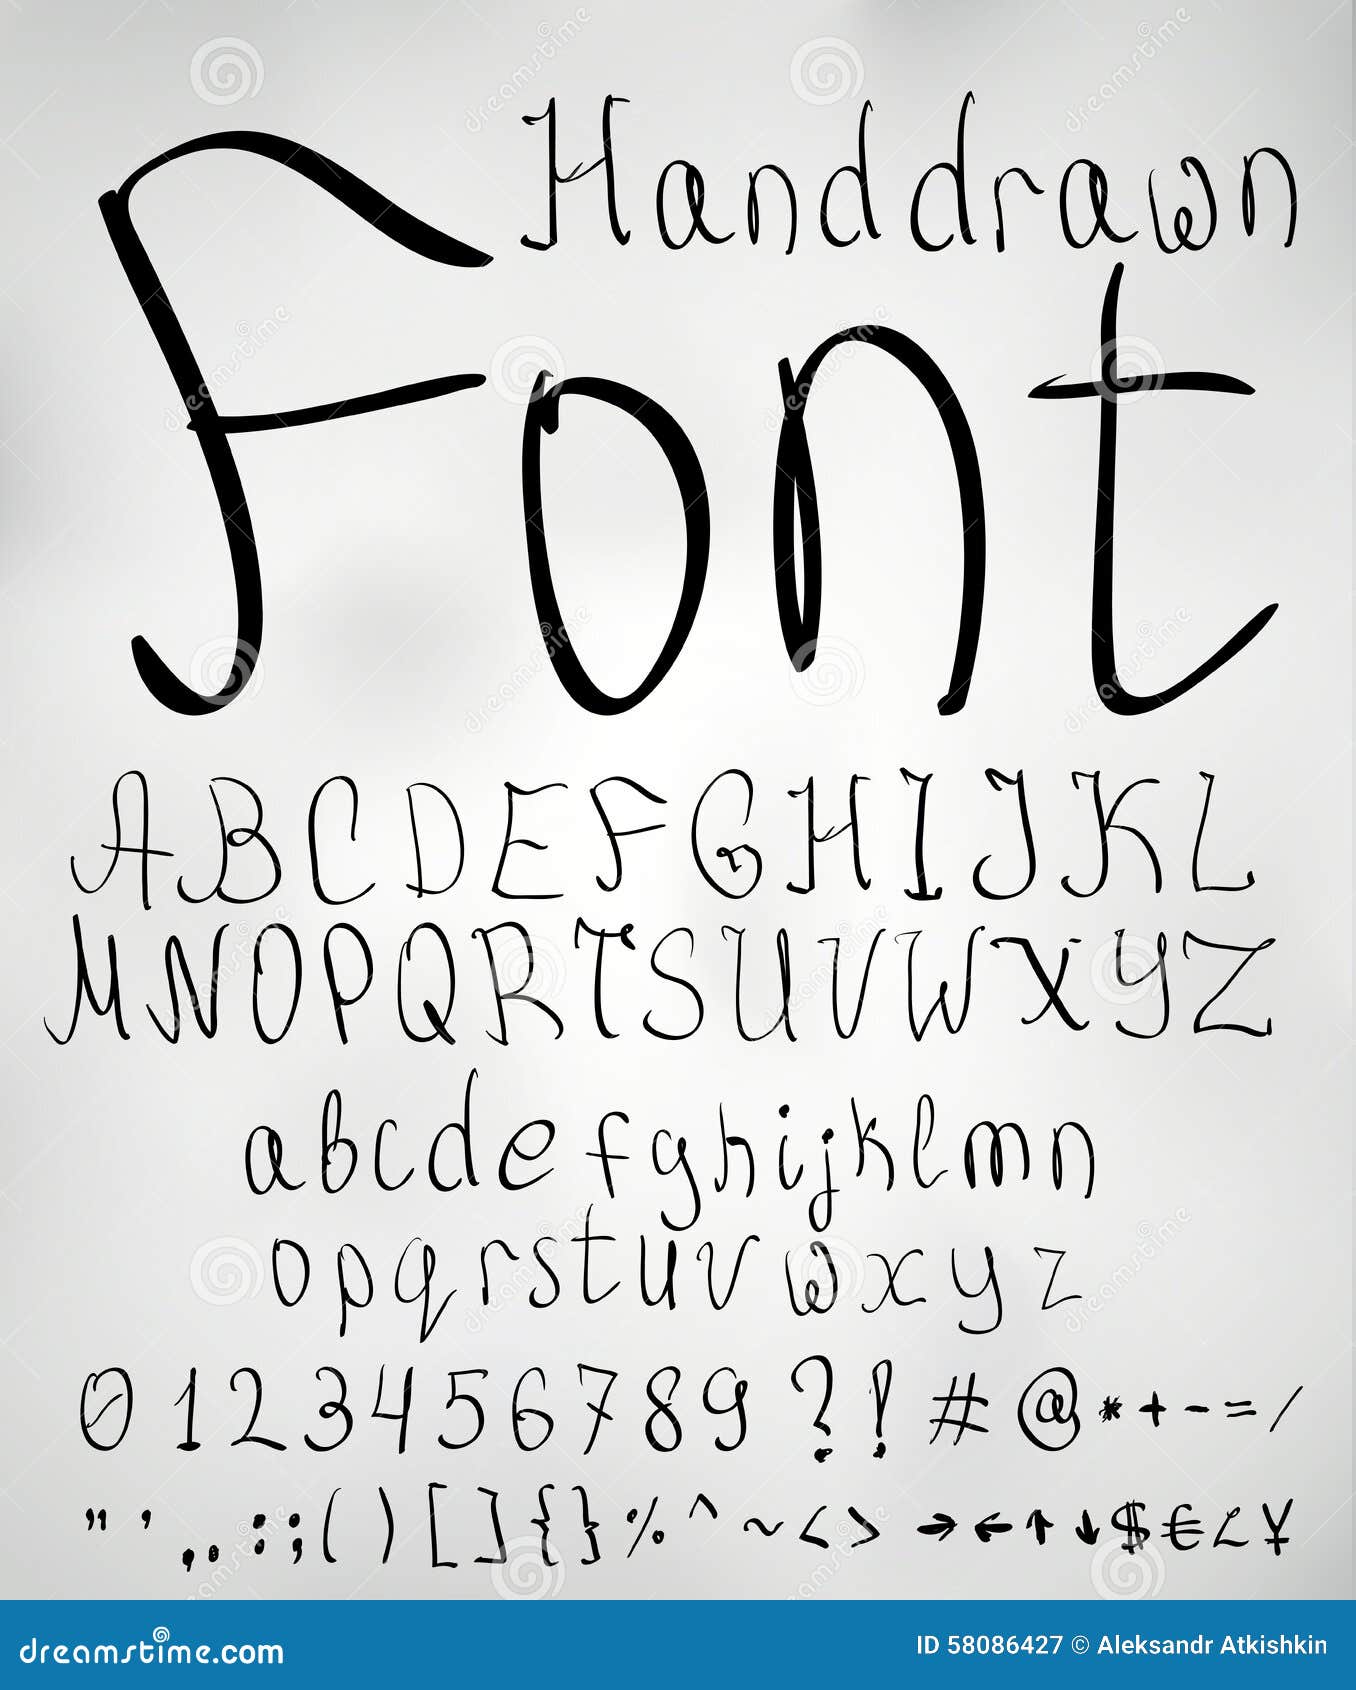 Handdrawn
Font
ABCDEFGHIJKL
MNOPQRTSUVWXYZ
abcdefghijklmn
opqrstuvwxyz
0123456789?!#@*+-=/
"',.:;()[]{}%^~<>→←↑↓$€£¥
dreamstime.com
ID 58086427 © Aleksandr Atkishkin